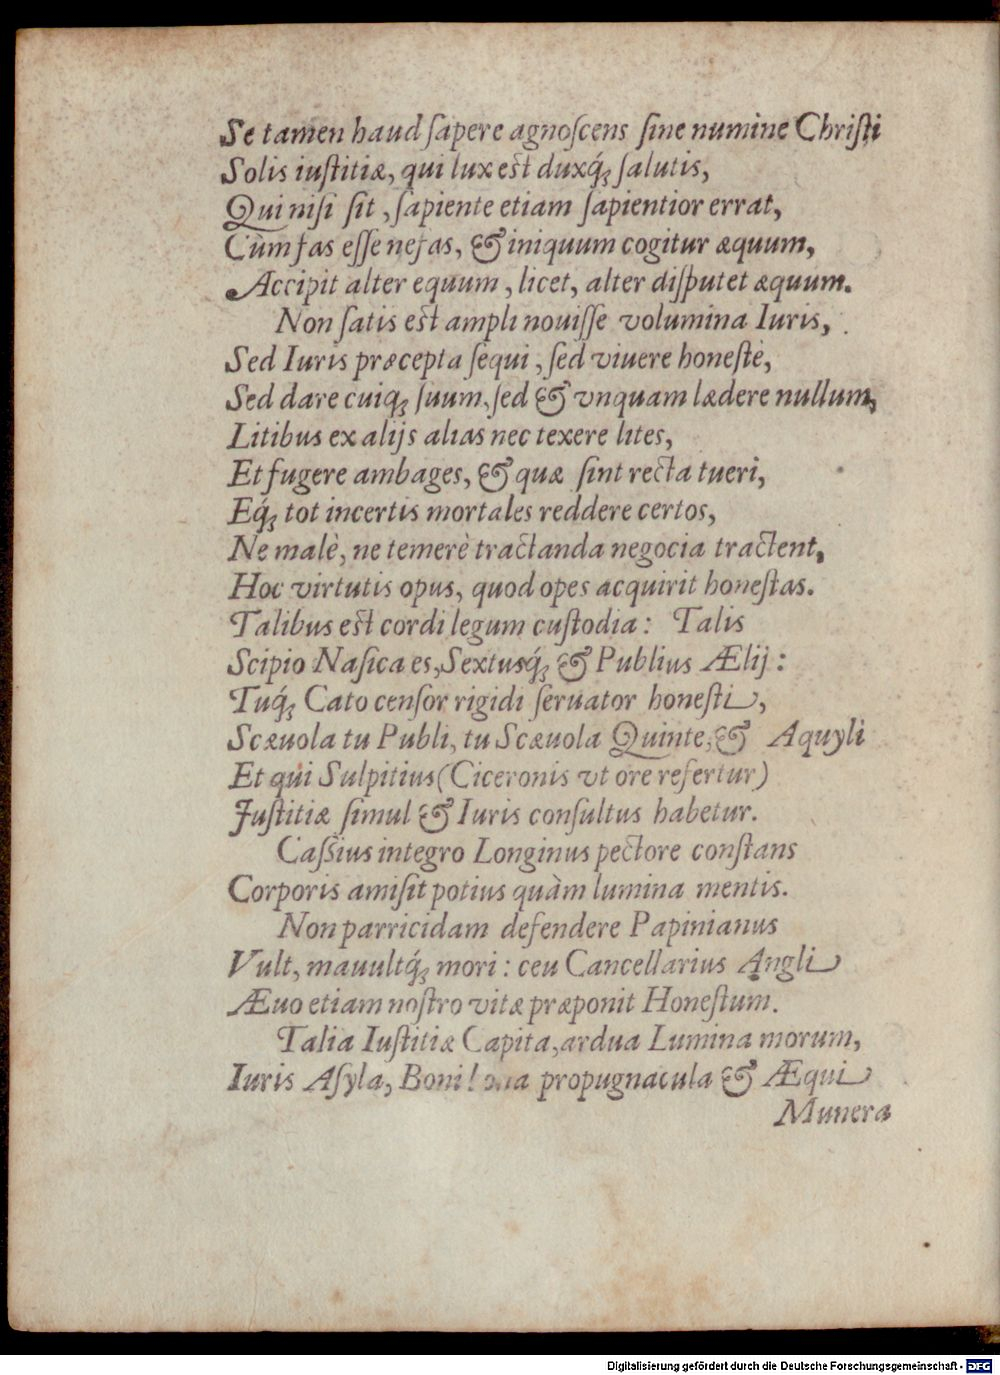 Se tamen haud ſapere agnoſcens ſine numine Chriſti
Solis iuſtitiæ, qui lux est duxq́ꝫ ſalutis,
Qui niſi ſit, ſapiente etiam ſapientior errat,
Cùm fas eſſe nefas, & iniquum cogitur æquum,
Accipit alter equum, licet, alter diſputet æquum.
Non ſatis est ampli nouiſſe volumina Iuris,
Sed Iuris præcepta ſequi, ſed viuere honeſtè,
Sed dare cuiq́ꝫ ſuum, ſed & vnquam lædere nullum,
Litibus ex alijs alias nec texere lites,
Et fugere ambages, & quæ ſint recta tueri,
Eq́ꝫ tot incertis mortales reddere certos,
Ne malè, ne temerè tractanda negocia tractent,
Hoc virtutis opus, quod opes acquirit honeſtas.
Talibus est cordi legum cuſtodia: Talis
Scipio Naſica es, Sextusq́ꝫ & Publius Ælij:
Tuq́ꝫ Cato cenſor rigidi ſeruator honeſti,
Scæuola tu Publi, tu Scæuola Quinte, & Aquyli
Et qui Sulpitius (Ciceronis vt ore refertur)
Juſtitiæ ſimul & Iuris conſultus habetur.
Caſsius integro Longinus pectore conſtans
Corporis amiſit potius quàm lumina mentis.
Non parricidam defendere Papinianus
Vult, mauultq́ꝫ mori: ceu Cancellarius Angli
Æuo etiam noſtro vitæ præponit Honeſtum.
Talia Iuſtitiæ Capita, ardua Lumina morum,
Iuris Aſyla, Boni propugnacula & Æqui
Munera
Digitalisierung gefördert durch die Deutsche Forschungsgemeinschaft - DFG